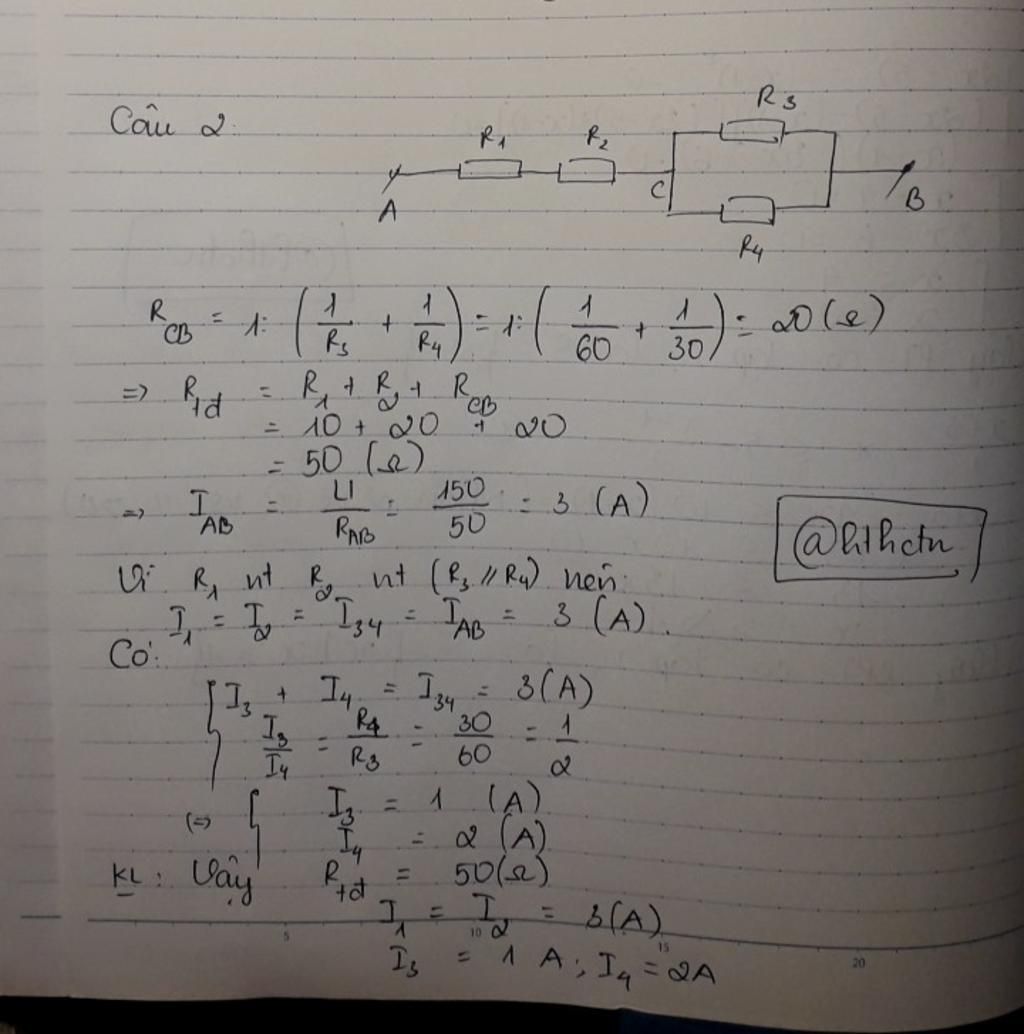 Câu 2:
R3
R1 R2
C
A B
R4
R_CB = 1: (1/R3 + 1/R4) = 1: (1/60 + 1/30) = 20 (Ω)
=> R_tđ = R1 + R2 + R_CB
= 10 + 20 + 20
= 50 (Ω)
=> I_AB = U/R_AB = 150/50 = 3 (A)
@hthctn
Vì R1 nt R2 nt (R3 // R4) nên:
I1 = I2 = I34 = I_AB = 3 (A).
Có:
{ I3 + I4 = I34 = 3(A)
I3/I4 = R4/R3 = 30/60 = 1/2
(=> { I3 = 1 (A)
I4 = 2 (A)
KL: Vậy R_tđ = 50(Ω)
I1 = I2 = 3(A)
I3 = 1 A; I4 = 2A
5 10 15 20